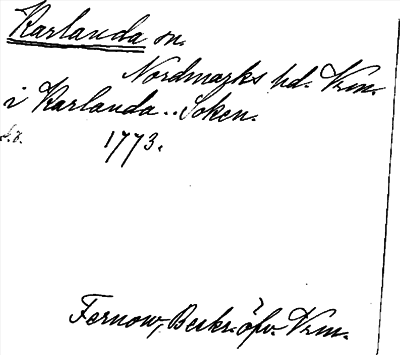 Karlanda sn.
Nordmarks hd. Vrm.
i Karlanda .. Soken.
1773.
Fernow, Beskr. öfv. Vrm.